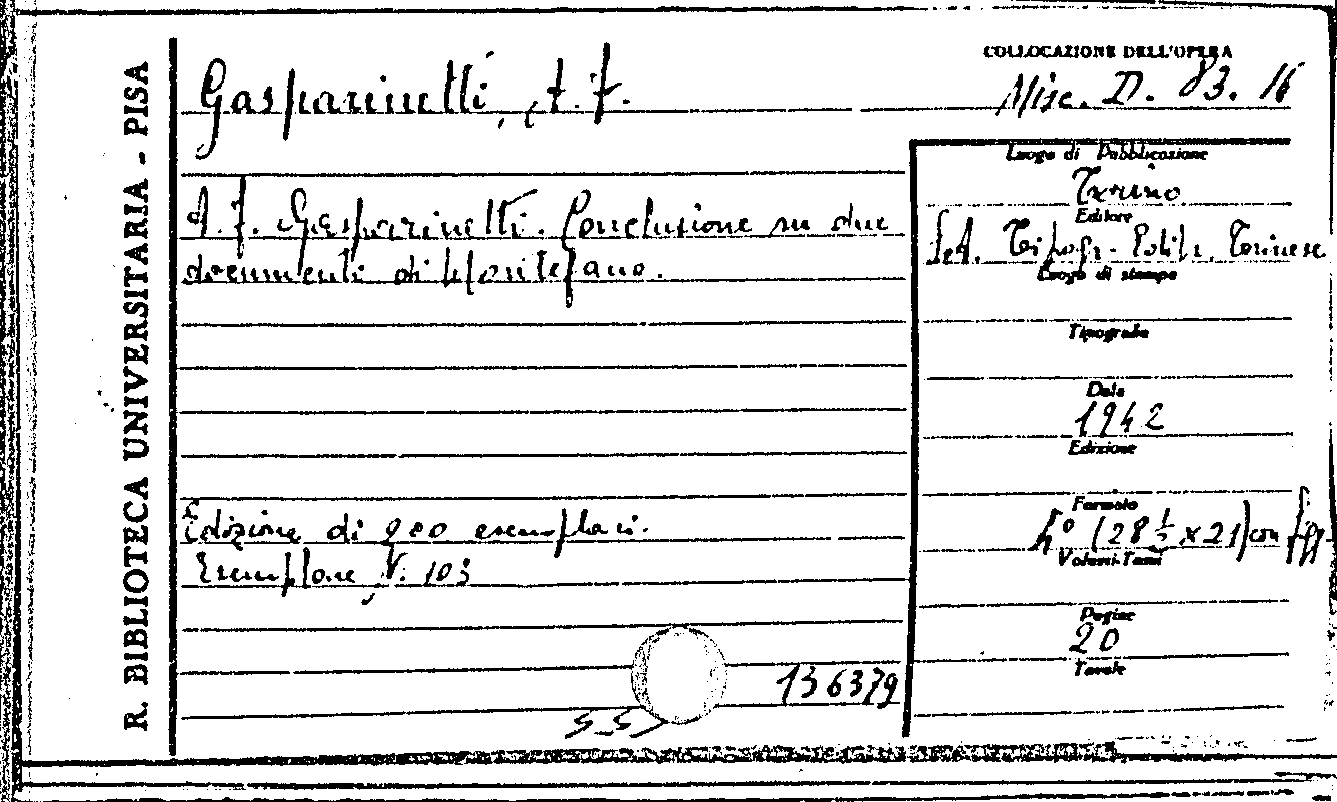 R. BIBLIOTECA UNIVERSITARIA - PISA
COLLOCAZIONE DELL'OPERA
Misc. D. 83. 16
Gasparinetti, A. F.
A. F. Gasparinetti. Conclusione su due
documenti di Montefano.
Edizione di 200 esemplari.
Esemplare N. 103
136379
Luogo di Pubblicazione
Torino
Editore
S.A. Tipogr. Editr. Torinese
Luogo di stampa
Tipografia
Data
1942
Edizione
Formato
4° (28 ½ x 21) con figg.
Volumi-Tomi
Pagine
20
Tavole